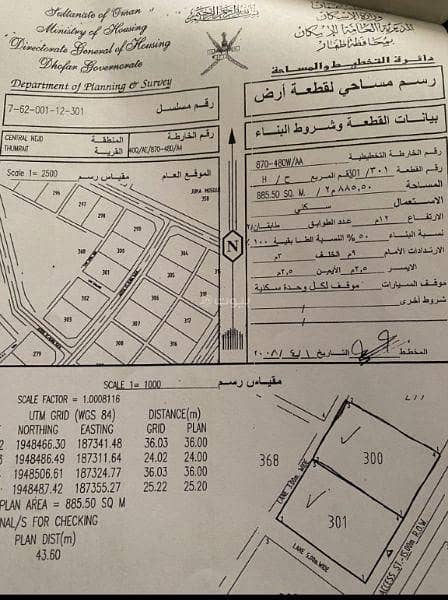 Sultanate of Oman
Ministry of Housing
Directorate General of Housing
Dhofar Governorate
Department of Planning & Survey
دائرة التخطيط والمساحة
رسم مساحي لقطعة أرض
بيانات القطعة وشروط البناء
7-62-001-12-301
رقم مسلسل
CENTRAL NEJD
المنطقة
رقم الخارطة
THUMRAIT
القرية
400/AE/870-480/AA
Scale 1= 2500
مقياس رسم
الموقع العام
JUMA MOSQUE
358
رقم الخارطة التخطيطية 870-480W/AA
رقم القطعة ٣٠١/301 رقم المربع ح / H
المساحة ٨٨٥,٥٠ م٢ / 885.50 SQ. M
الاستعمال سكني
الارتفاع ١٢ م عدد الطوابق طابقان/٢
نسبة البناء ٥٠ % النسبة الطابقية ١٠٠ %
الارتدادات الأمام ٩م الخلف ٣م
الأيسر ٢,٥م الأيمن ٢,٥م
موقف السيارات موقف لكل وحدة سكنية
شروط أخرى
المخطط
التاريخ ٢٠٠٨/٤/١
296
297
301
302
303
304
315
316
317
314
279
N
SCALE 1= 1000
مقياس رسم
SCALE FACTOR = 1.0008116
UTM GRID (WGS 84) DISTANCE(m)
NORTHING EASTING GRID PLAN
2 1948466.30 187341.48 36.03 36.00
3 1948486.49 187311.64 24.02 24.00
1948506.61 187324.77 36.03 36.00
1948487.42 187355.27 25.22 25.20
PLAN AREA = 885.50 SQ M
NAL/S FOR CHECKING
PLAN DIST(m)
43.60
368
300
301
LANE 5.00m WIDE
ACCESS ST.-15.00m R.O.W.